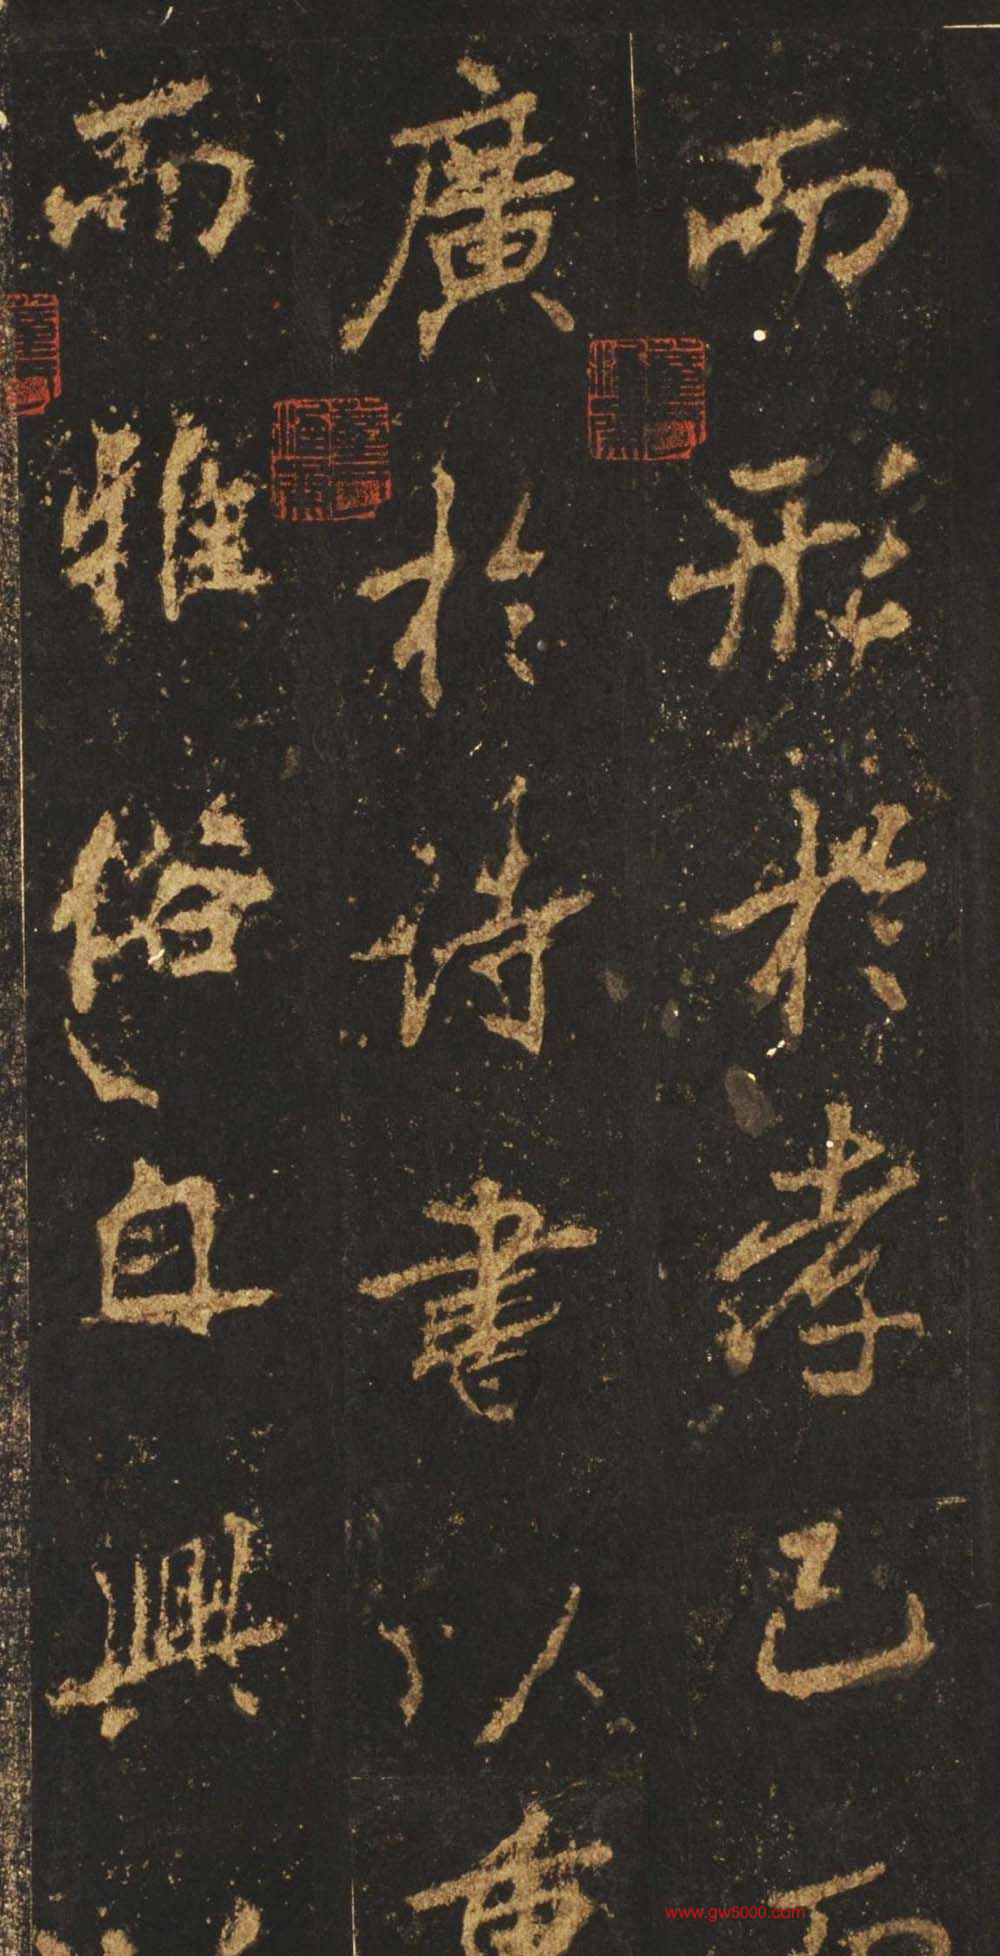 而形於孝已
廣於詩書以重
而雅俗自興
www.gw5000.com